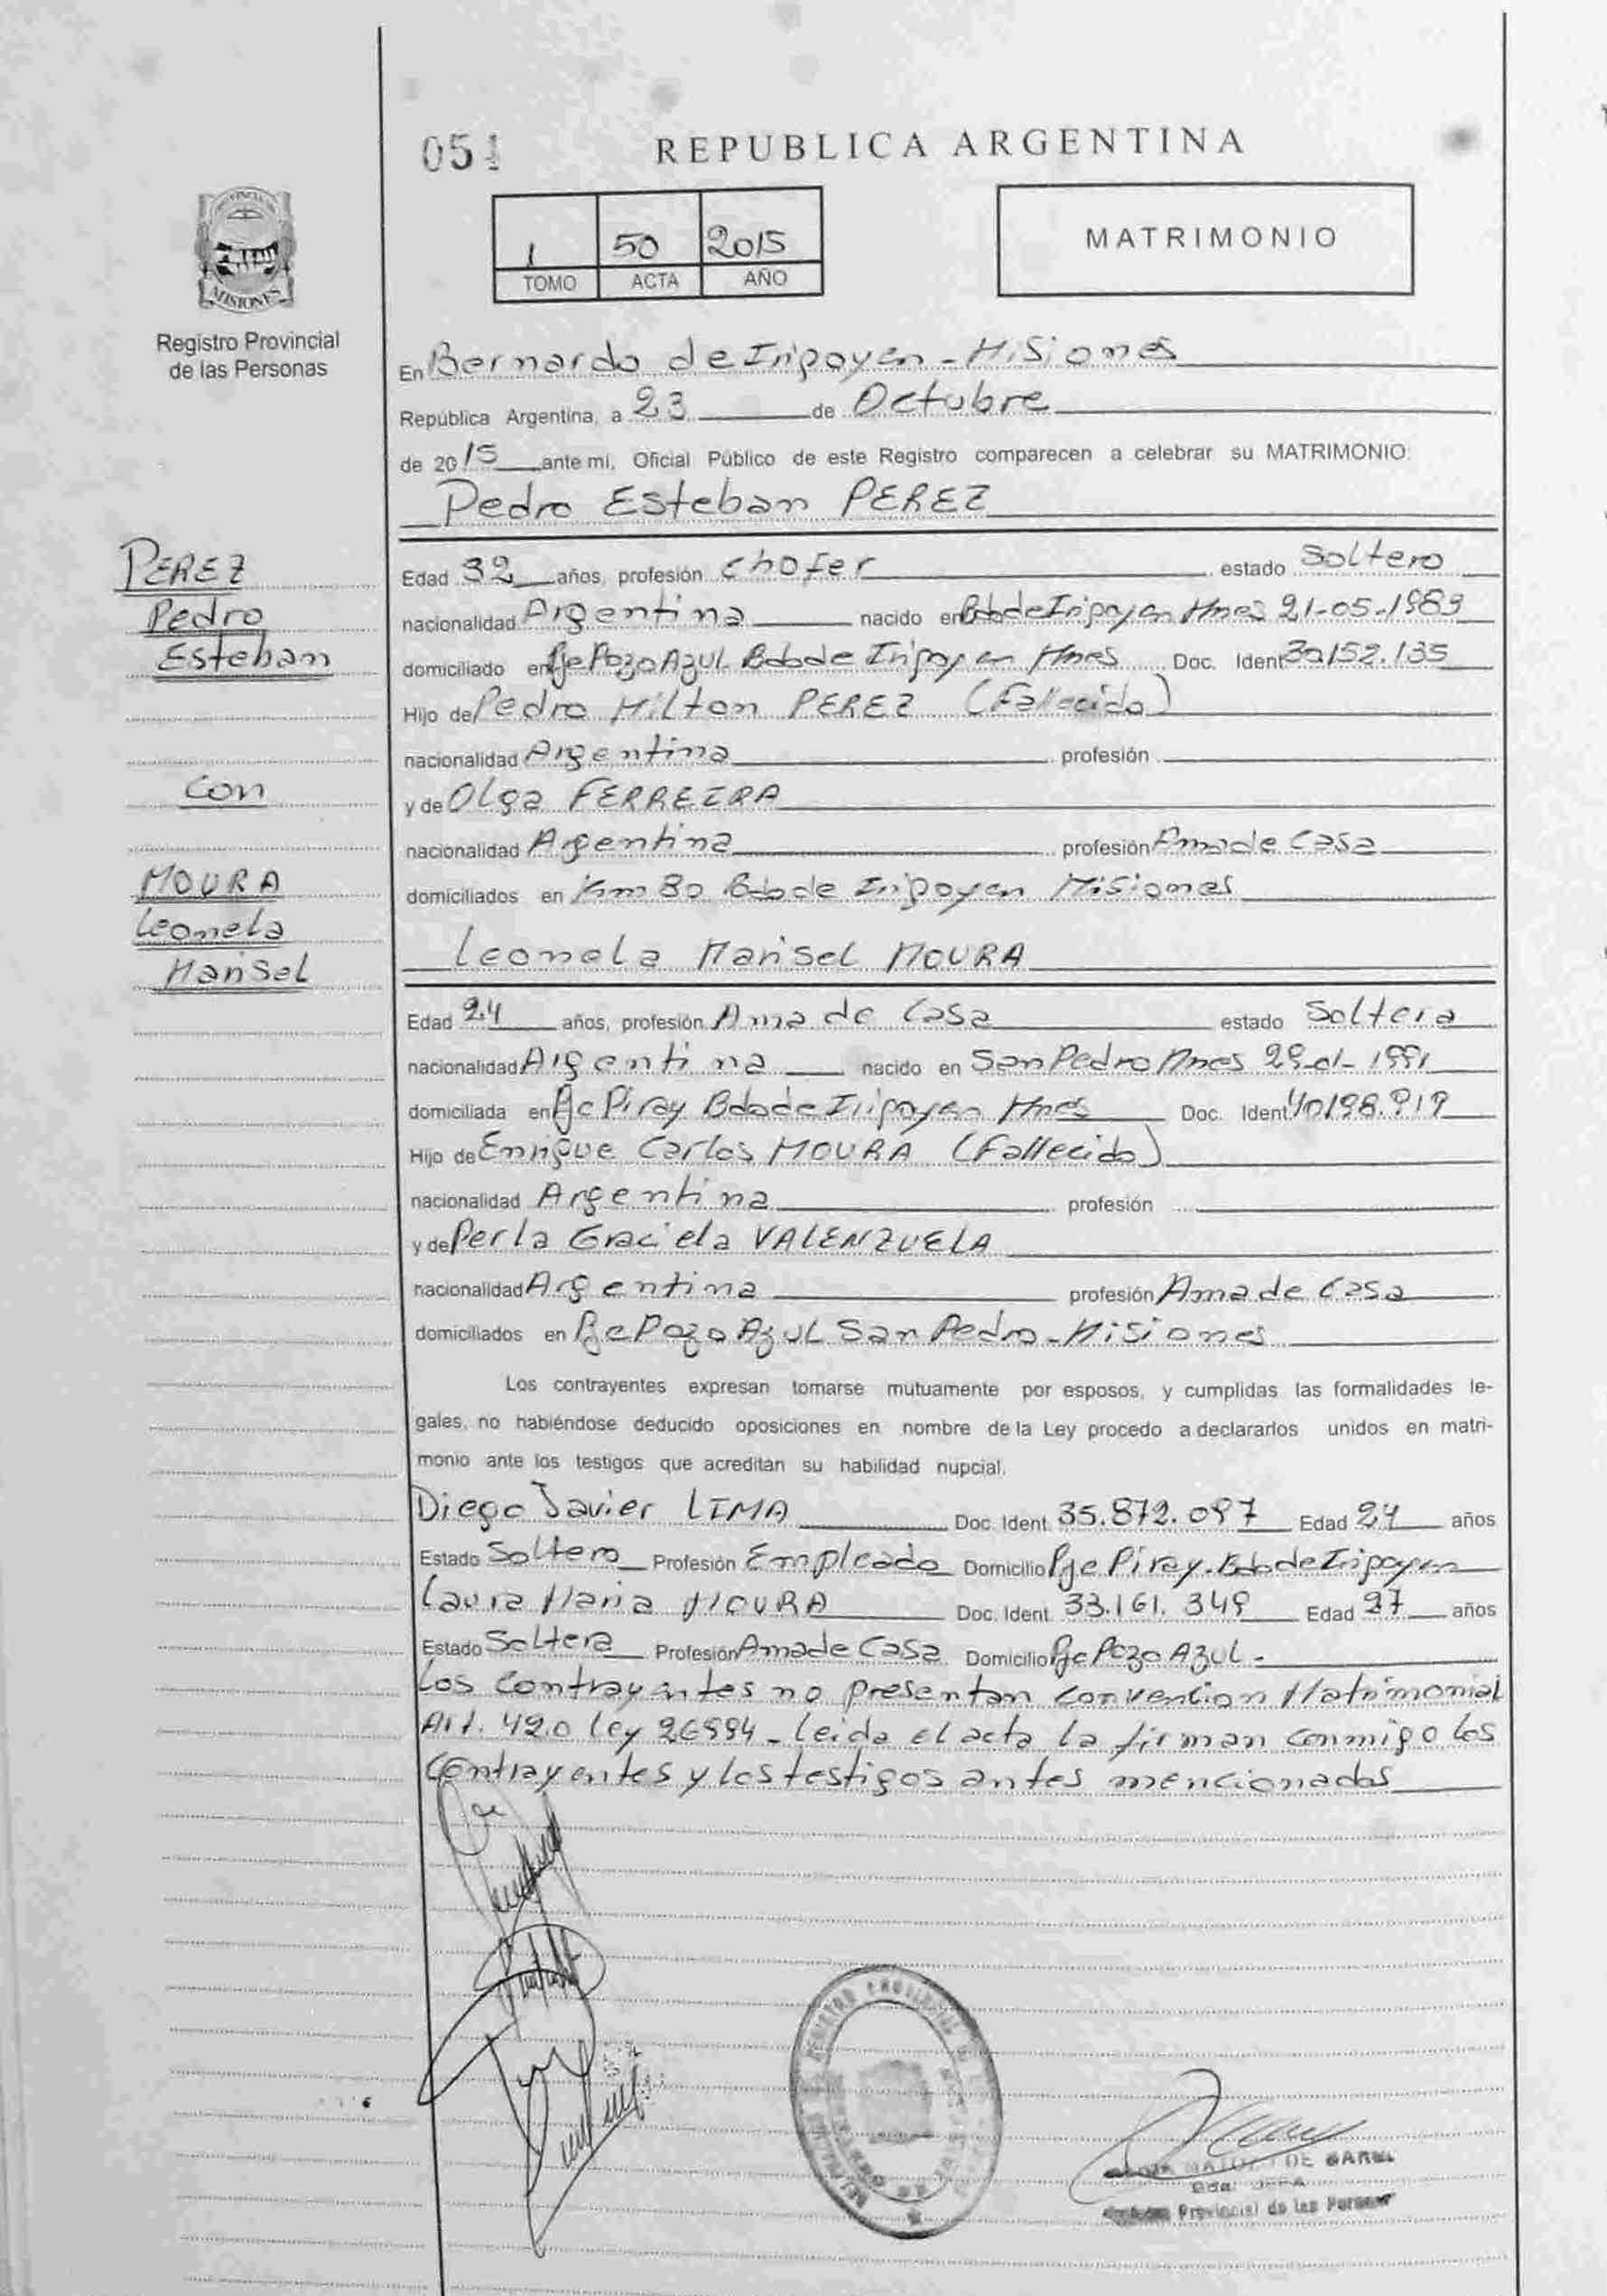 051
REPUBLICA ARGENTINA
1 50 2015
TOMO ACTA AÑO
MATRIMONIO
MISIONES
Registro Provincial
de las Personas
En Bernardo de Irigoyen - Misiones
República Argentina, a 23 de Octubre
de 2015 ante mi, Oficial Público de este Registro comparecen a celebrar su MATRIMONIO:
Pedro Esteban PEREZ
PEREZ
Pedro
Esteban
con
MOURA
Leonela
Marisel
Edad 32 años, profesión chofer estado Soltero
nacionalidad Argentina nacido en Bdo de Irigoyen Mnes 21-05-1983
domiciliado en Pje Pozo Azul Bdo de Irigoyen Mnes Doc. Ident 30152.135
Hijo de Pedro Milton PEREZ (Fallecido)
nacionalidad Argentina profesión
y de Olga FERREIRA
nacionalidad Argentina profesión Ama de Casa
domiciliados en Km 80 Bdo de Irigoyen Misiones
Leonela Marisel MOURA
Edad 24 años, profesión Ama de Casa estado Soltera
nacionalidad Argentina nacido en San Pedro Mnes 29-01-1991
domiciliada en Pje Piray Bdo de Irigoyen Mnes Doc. Ident 40198.919
Hijo de Enrique Carlos MOURA (Fallecido)
nacionalidad Argentina profesión
y de Perla Graciela VALENZUELA
nacionalidad Argentina profesión Ama de Casa
domiciliados en Pje Pozo Azul San Pedro - Misiones
Los contrayentes expresan tomarse mutuamente por esposos, y cumplidas las formalidades le-
gales, no habiéndose deducido oposiciones en nombre de la Ley procedo a declararlos unidos en matri-
monio ante los testigos que acreditan su habilidad nupcial.
Diego Javier LIMA Doc. Ident. 35.872.097 Edad 24 años
Estado Soltero Profesión Empleado Domicilio Pje Piray. Bdo de Irigoyen
Laura Maria MOURA Doc. Ident. 33.161.349 Edad 27 años
Estado Soltera Profesión Ama de Casa Domicilio Pje Pozo Azul -
Los Contrayentes no presentan convencion Matrimonial
Art. 420 ley 26994 - leida el acta la firman conmigo los
Contrayentes y los testigos antes mencionados
DE
Provincial de las Personas